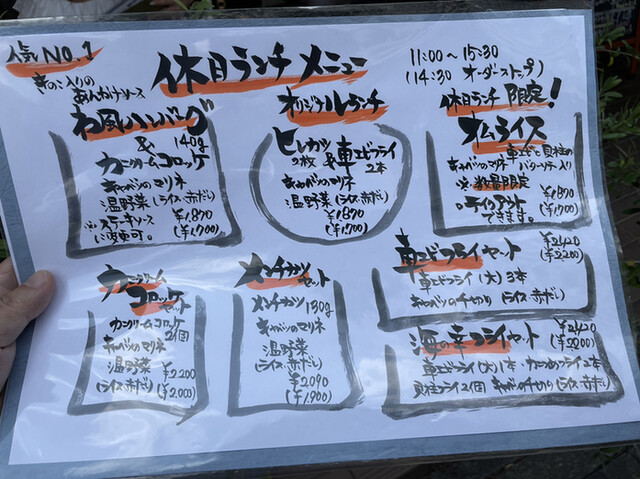 人気NO.1
休日ランチメニュー
11:00〜15:30
(14:30 オーダーストップ)
きのこ入りの
あんかけソース
わ風ハンバーグ
140g
&
カニクリームコロッケ
キャベツのマリネ
温野菜 (ライス・赤だし)
※ステーキソース
に変更可。
¥1,870
(¥1,700)
オリジナルランチ
ヒレカツ & 車エビフライ
2枚 2本
キャベツのマリネ
温野菜 (ライス・赤だし)
¥1,870
(¥1,700)
休日ランチ 限定!
オムライス
車エビと貝柱の
キャベツのマリネ
入り
※数量限定
テイクアウト
できます。
¥1,870
(¥1,700)
カニクリーム
コロッケ
セット
カニクリームコロッケ
2個
キャベツのマリネ
温野菜
(ライス・赤だし)
¥2,200
(¥2,000)
メンチカツ
セット
メンチカツ 130g
キャベツのマリネ
温野菜
(ライス・赤だし)
¥2,090
(¥1,900)
車エビフライセット
¥2,420
(¥2,200)
車エビフライ (大) 3本
キャベツの千切り (ライス・赤だし)
海の幸フライセット
¥2,420
(¥2,200)
車エビフライ(大)1本・カニつめフライ2本
貝柱フライ2個 キャベツの千切り (ライス・赤だし)